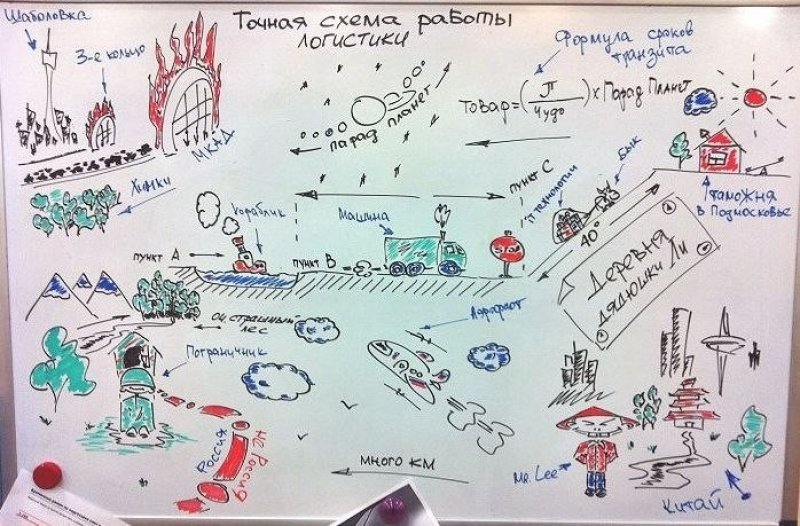 Точная схема работы
логистики
Шаболовка
3-е кольцо
МКАД
Химки
парад планет
Формула сроков
транзита
Товар=(П/чудо)×Парад Планет
таможня
в Подмосковье
бык
IT технологии
40°
пункт С
Машина
кораблик
пункт А
пункт В
STOP
Деревня
дядюшки Ли
ой, страшный
лес
Пограничник
Аэрофлот
Россия
не Россия
много км
Mr. Lee
Китай